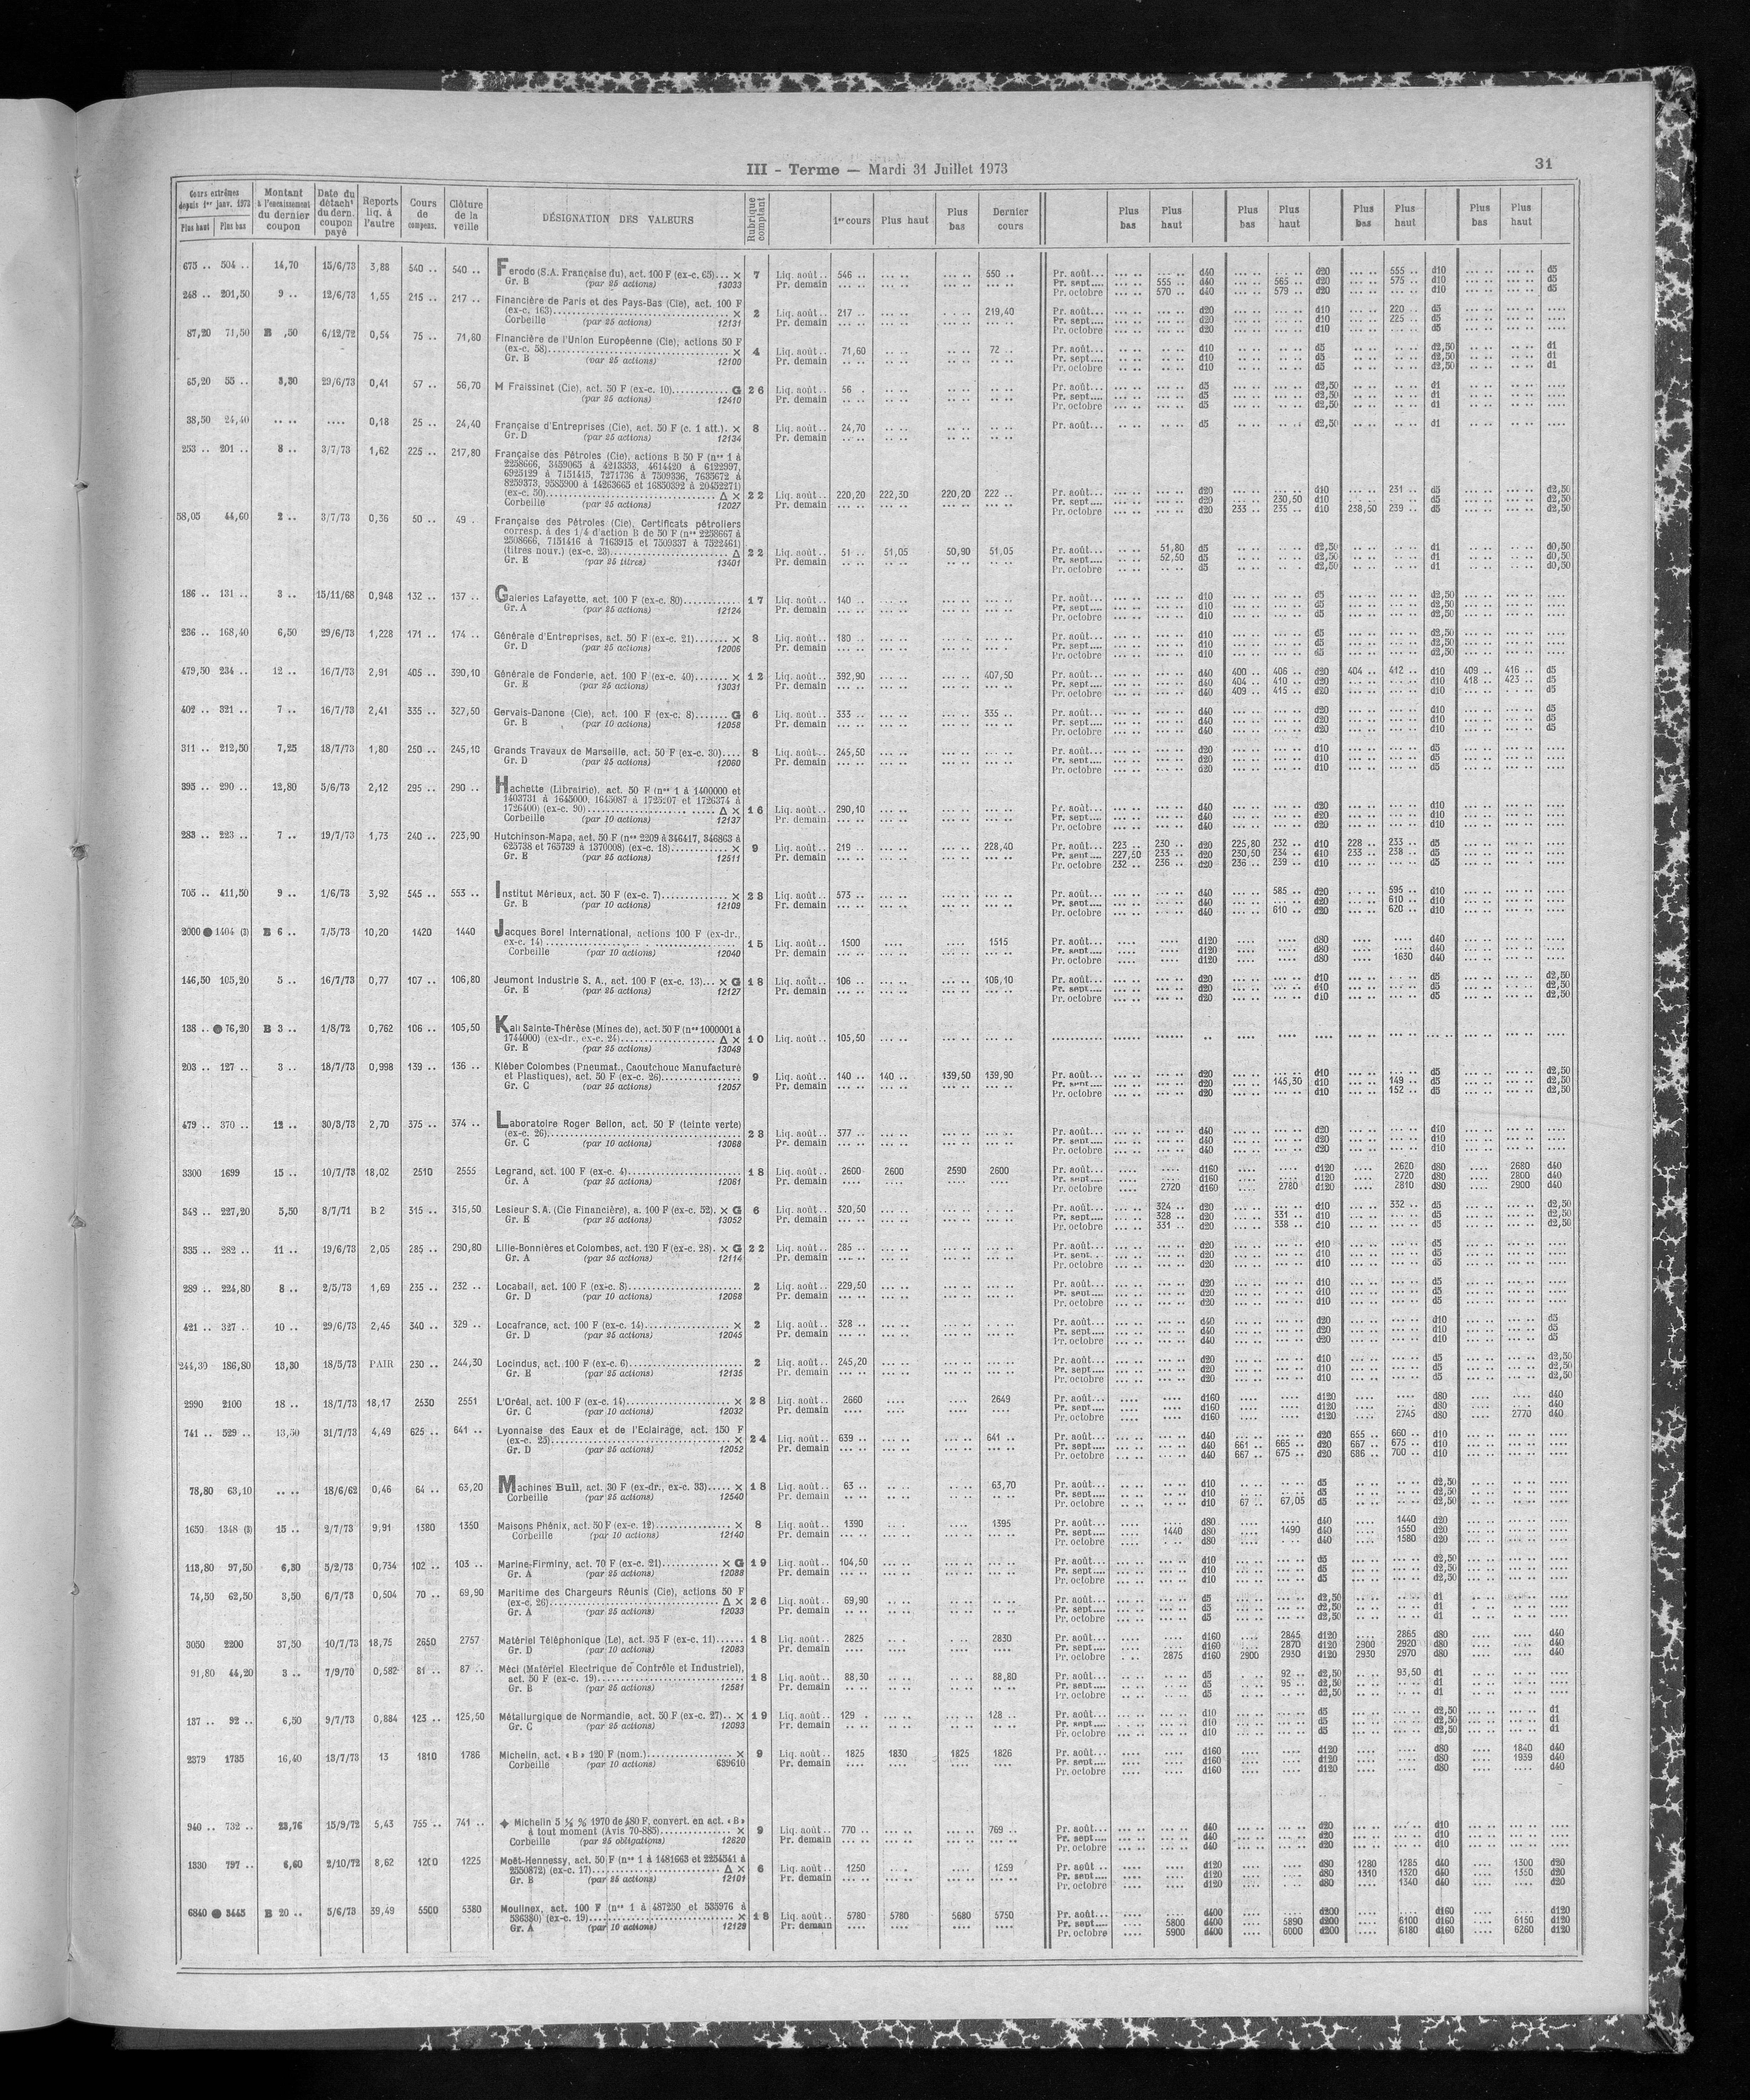 III - Terme — Mardi 31 Juillet 1973
31
Cours extrêmes depuis 1er janv. 1973 Plus haut Plus bas | Montant à l'encaissement du dernier coupon | Date du détacht du dern. coupon payé | Reports liq. à l'autre | Cours de compens. | Clôture de la veille | DÉSIGNATION DES VALEURS | Rubrique comptant | 1er cours | Plus haut | Plus bas | Dernier cours | Plus bas | Plus haut | Plus bas | Plus haut | Plus bas | Plus haut | Plus bas | Plus haut
675 .. 504 .. 14,70 15/6/73 3,88 540 .. 540 .. Ferodo (S.A. Française du), act. 100 F (ex-c. 65)... × 7 Liq. août.. 546 .. 550 .. Pr. août... d40 d20 555 .. d10 d5
Gr. B (par 25 actions) 13033 Pr. demain Pr. sept.... 555 .. d40 565 .. d20 575 .. d10 d5
Pr. octobre 570 .. d40 579 .. d20 d10 d5
248 .. 201,50 9 .. 12/6/73 1,55 215 .. 217 .. Financière de Paris et des Pays-Bas (Cie), act. 100 F
(ex-c. 163) × 2 Liq. août.. 217 .. 219,40 Pr. août... d20 d10 220 .. d5
Corbeille (par 25 actions) 12131 Pr. demain Pr. sept.... d20 d10 225 .. d5
Pr. octobre d20 d10 d5
87,20 71,50 B ,50 6/12/72 0,54 75 .. 71,80 Financière de l'Union Européenne (Cie), actions 50 F
(ex-c. 58) × 4 Liq. août.. 71,60 72 .. Pr. août... d10 d5 d2,50 d1
Gr. B (par 25 actions) 12100 Pr. demain Pr. sept.... d10 d5 d2,50 d1
Pr. octobre d10 d5 d2,50 d1
65,20 55 .. 3,30 29/6/73 0,41 57 .. 56,70 M Fraissinet (Cie), act. 50 F (ex-c. 10) G 26 Liq. août.. 56 . Pr. août... d5 d2,50 d1
(par 25 actions) 12410 Pr. demain Pr. sept.... d5 d2,50 d1
Pr. octobre d5 d2,50 d1
38,50 24,40 .... .... 0,18 25 .. 24,40 Française d'Entreprises (Cie), act. 50 F (c. 1 att.). × 8 Liq. août.. 24,70 Pr. août... d5 d2,50 d1
Gr. D (par 25 actions) 12134 Pr. demain
253 .. 201 .. 8 .. 3/7/73 1,62 225 .. 217,80 Française des Pétroles (Cie), actions B 50 F (nos 1 à
2258666, 3459065 à 4213353, 4614420 à 6122997,
6925129 à 7151415, 7271736 à 7509336, 7635672 à
8259373, 9585900 à 14263665 et 16850392 à 20452271)
(ex-c. 50) Δ × 22 Liq. août.. 220,20 222,30 220,20 222 .. Pr. août... d20 d10 231 .. d5 d2,50
Corbeille (par 25 actions) 12027 Pr. demain Pr. sept.... d20 230,50 d10 d5 d2,50
Pr. octobre d20 233 .. 235 .. d10 238,50 239 .. d5 d2,50
58,05 44,60 2 .. 3/7/73 0,36 50 .. 49 . Française des Pétroles (Cie), Certificats pétroliers
corresp. à des 1/4 d'action B de 50 F (nos 2258667 à
2508666, 7151416 à 7163915 et 7509337 à 7522461)
(titres nouv.) (ex-c. 23) Δ 22 Liq. août.. 51 .. 51,05 50,90 51,05 Pr. août... 51,80 d5 d2,50 d1 d0,50
Gr. E (par 25 titres) 13401 Pr. demain Pr. sept.... 52,50 d5 d2,50 d1 d0,50
Pr. octobre d5 d2,50 d1 d0,50
186 .. 131 .. 3 .. 15/11/68 0,948 132 .. 137 .. Galeries Lafayette, act. 100 F (ex-c. 80) 17 Liq. août.. 140 .. Pr. août... d10 d5 d2,50
Gr. A (par 25 actions) 12124 Pr. demain Pr. sept.... d10 d5 d2,50
Pr. octobre d10 d5 d2,50
236 .. 168,40 6,50 29/6/73 1,228 171 .. 174 .. Générale d'Entreprises, act. 50 F (ex-c. 21) × 8 Liq. août.. 180 .. Pr. août... d10 d5 d2,50
Gr. D (par 25 actions) 12006 Pr. demain Pr. sept.... d10 d5 d2,50
Pr. octobre d10 d5 d2,50
479,50 234 .. 12 .. 16/7/73 2,91 405 .. 390,10 Générale de Fonderie, act. 100 F (ex-c. 40) × 12 Liq. août.. 392,90 407,50 Pr. août... d40 400 .. 406 .. d20 404 .. 412 .. d10 409 .. 416 .. d5
Gr. E (par 25 actions) 13031 Pr. demain Pr. sept.... d40 404 .. 410 .. d20 d10 418 .. 423 .. d5
Pr. octobre d40 409 .. 415 .. d20 d10 d5
402 .. 321 .. 7 .. 16/7/73 2,41 335 .. 327,50 Gervais-Danone (Cie), act. 100 F (ex-c. 8) G 6 Liq. août.. 333 .. 335 .. Pr. août... d40 d20 d10 d5
Gr. B (par 10 actions) 12058 Pr. demain Pr. sept.... d40 d20 d10 d5
Pr. octobre d40 d20 d10 d5
311 .. 212,50 7,25 18/7/73 1,80 250 .. 245,10 Grands Travaux de Marseille, act. 50 F (ex-c. 30) 8 Liq. août.. 245,50 Pr. août... d20 d10 d5
Gr. D (par 25 actions) 12060 Pr. demain Pr. sept.... d20 d10 d5
Pr. octobre d20 d10 d5
395 .. 290 .. 12,80 5/6/73 2,12 295 .. 290 .. Hachette (Librairie), act. 50 F (nos 1 à 1400000 et
1403731 à 1645000, 1645087 à 1725207 et 1726374 à
1726400) (ex-c. 90) Δ × 16 Liq. août.. 290,10 Pr. août... d40 d20 d10
Corbeille (par 10 actions) 12137 Pr. demain Pr. sept.... d40 d20 d10
Pr. octobre d40 d20 d10
283 .. 223 .. 7 .. 19/7/73 1,73 240 .. 223,90 Hutchinson-Mapa, act. 50 F (nos 2209 à 346417, 346863 à
625738 et 765739 à 1370008) (ex-c. 18) × 9 Liq. août.. 219 .. 228,40 Pr. août... 223 .. 230 .. d20 225,80 232 .. d10 228 .. 233 .. d5
Gr. E (par 25 actions) 12511 Pr. demain Pr. sept.... 227,50 233 .. d20 230,50 234 .. d10 233 .. 238 .. d5
Pr. octobre 232 .. 236 .. d20 236 .. 239 .. d10 d5
705 .. 411,50 9 .. 1/6/73 3,92 545 .. 553 .. Institut Mérieux, act. 50 F (ex-c. 7) × 28 Liq. août.. 573 .. Pr. août... d40 585 .. d20 595 .. d10
Gr. B (par 10 actions) 12109 Pr. demain Pr. sept.... d40 d20 610 .. d10
Pr. octobre d40 610 .. d20 620 .. d10
2000 ● 1404 (3) B 6 .. 7/5/73 10,20 1420 1440 Jacques Borel International, actions 100 F (ex-dr.,
ex-c. 14) 15 Liq. août.. 1500 1515 Pr. août... d120 d80 d40
Corbeille (par 10 actions) 12040 Pr. demain Pr. sept.... d120 d80 d40
Pr. octobre d120 d80 1630 d40
146,50 105,20 5 .. 16/7/73 0,77 107 .. 106,80 Jeumont Industrie S. A., act. 100 F (ex-c. 13)... × G 18 Liq. août.. 106 .. 106,10 Pr. août... d20 d10 d5 d2,50
Gr. E (par 25 actions) 12127 Pr. demain Pr. sept.... d20 d10 d5 d2,50
Pr. octobre d20 d10 d5 d2,50
138 .. ● 76,20 B 3 .. 1/8/72 0,762 106 .. 105,50 Kali Sainte-Thérèse (Mines de), act. 50 F (nos 1000001 à
1744000) (ex-dr., ex-c. 24) Δ × 10 Liq. août.. 105,50
Gr. E (par 25 actions) 13049
203 .. 127 .. 3 .. 18/7/73 0,998 139 .. 136 .. Kléber Colombes (Pneumat., Caoutchouc Manufacturé
et Plastiques), act. 50 F (ex-c. 26) 9 Liq. août.. 140 .. 140 .. 139,50 139,90 Pr. août... d20 d10 d5 d2,50
Gr. C (par 25 actions) 12057 Pr. demain Pr. sept.... d20 145,30 d10 149 .. d5 d2,50
Pr. octobre d20 d10 152 .. d5 d2,50
479 .. 370 .. 12 .. 30/3/73 2,70 375 .. 374 .. Laboratoire Roger Bellon, act. 50 F (teinte verte)
(ex-c. 26) 28 Liq. août.. 377 .. Pr. août... d40 d20 d10
Gr. C (par 10 actions) 13068 Pr. demain Pr. sept.... d40 d20 d10
Pr. octobre d40 d20 d10
3300 1699 15 .. 10/7/73 18,02 2510 2555 Legrand, act. 100 F (ex-c. 4) 18 Liq. août.. 2600 2600 2590 2600 Pr. août... d160 d120 2620 d80 2680 d40
Gr. A (par 25 actions) 12061 Pr. demain Pr. sept.... d160 d120 2720 d80 2800 d40
Pr. octobre 2720 d160 2780 d120 2810 d80 2900 d40
348 .. 227,20 5,50 8/7/71 B 2 315 .. 315,50 Lesieur S.A. (Cie Financière), a. 100 F (ex-c. 52). × G 6 Liq. août.. 320,50 Pr. août... 324 .. d20 d10 332 .. d5 d2,50
Gr. E (par 25 actions) 13052 Pr. demain Pr. sept.... 328 .. d20 331 .. d10 d5 d2,50
Pr. octobre 331 .. d20 338 .. d10 d5 d2,50
335 .. 282 .. 11 .. 19/6/73 2,05 285 .. 290,80 Lille-Bonnières et Colombes, act. 120 F (ex-c. 28). × G 22 Liq. août.. 285 .. Pr. août... d20 d10 d5
Gr. A (par 25 actions) 12114 Pr. demain Pr. sept. d20 d10 d5
Pr. octobre d20 d10 d5
289 .. 224,80 8 .. 2/5/73 1,69 235 .. 232 .. Locabail, act. 100 F (ex-c. 8) 2 Liq. août.. 229,50 Pr. août... d20 d10 d5
Gr. D (par 10 actions) 12068 Pr. demain Pr. sept.... d20 d10 d5
Pr. octobre d20 d10 d5
421 .. 327 .. 10 .. 29/6/73 2,45 340 .. 329 .. Locafrance, act. 100 F (ex-c. 14) × 2 Liq. août.. 328 .. Pr. août... d40 d20 d10 d5
Gr. D (par 25 actions) 12045 Pr. demain Pr. sept.... d40 d20 d10 d5
Pr. octobre d40 d20 d10 d5
244,30 186,80 13,30 18/5/73 PAIR 230 .. 244,30 Locindus, act. 100 F (ex-c. 6) 2 Liq. août.. 245,20 Pr. août... d20 d10 d5 d2,50
Gr. E (par 25 actions) 12135 Pr. demain Pr. sept.... d20 d10 d5 d2,50
Pr. octobre d20 d10 d5 d2,50
2990 2100 18 .. 18/7/73 18,17 2530 2551 L'Oréal, act. 100 F (ex-c. 14) × 28 Liq. août.. 2660 2649 Pr. août... d160 d120 d80 d40
Gr. C (par 10 actions) 12032 Pr. demain Pr. sept.... d160 d120 d80 d40
Pr. octobre d160 d120 2745 d80 2770 d40
741 .. 529 .. 13,50 31/7/73 4,49 625 .. 641 .. Lyonnaise des Eaux et de l'Eclairage, act. 150 F
(ex-c. 25) × 24 Liq. août.. 639 .. 641 .. Pr. août... d40 d20 655 .. 660 .. d10
Gr. D (par 25 actions) 12052 Pr. demain Pr. sept.... d40 661 .. 665 .. d20 667 .. 675 .. d10
Pr. octobre d40 667 .. 675 .. d20 686 .. 700 .. d10
78,80 63,10 .... 18/6/62 0,46 64 .. 63,20 Machines Bull, act. 30 F (ex-dr., ex-c. 33) × 18 Liq. août.. 63 .. 63,70 Pr. août... d10 d5 d2,50
Corbeille (par 25 actions) 12540 Pr. demain Pr. sept.... d10 d5 d2,50
Pr. octobre d10 67 .. 67,05 d5 d2,50
1650 1348 (3) 15 .. 2/7/73 9,91 1380 1350 Maisons Phénix, act. 50 F (ex-c. 12) × 8 Liq. août.. 1390 1395 Pr. août... d80 d40 1440 d20
Corbeille (par 10 actions) 12140 Pr. demain Pr. sept.... 1440 d80 1490 d40 1550 d20
Pr. octobre d80 d40 1580 d20
113,80 97,50 6,30 5/2/73 0,734 102 .. 103 .. Marine-Firminy, act. 70 F (ex-c. 21) × G 19 Liq. août.. 104,50 Pr. août... d10 d5 d2,50
Gr. A (par 25 actions) 12088 Pr. demain Pr. sept.... d10 d5 d2,50
Pr. octobre d10 d5 d2,50
74,50 62,50 3,50 6/7/73 0,504 70 .. 69,90 Maritime des Chargeurs Réunis (Cie), actions 50 F
(ex-c. 26) Δ × 26 Liq. août.. 69,90 Pr. août... d5 d2,50 d1
Gr. A (par 25 actions) 12033 Pr. demain Pr. sept.... d5 d2,50 d1
Pr. octobre d5 d2,50 d1
3050 2200 37,50 10/7/73 18,75 2650 2757 Matériel Téléphonique (Le), act. 95 F (ex-c. 11) 18 Liq. août.. 2825 2830 Pr. août... d160 2845 d120 2865 d80 d40
Gr. D (par 10 actions) 12083 Pr. demain Pr. sept.... d160 2870 d120 2900 2920 d80 d40
Pr. octobre 2875 d160 2900 2930 d120 2930 2970 d80 d40
91,80 44,20 3 .. 7/9/70 0,582 81 .. 87 .. Méci (Matériel Electrique de Contrôle et Industriel),
act. 50 F (ex-c. 19) 18 Liq. août.. 88,30 88,80 Pr. août... d5 92 .. d2,50 93,50 d1
Gr. B (par 25 actions) 12581 Pr. demain Pr. sept.... d5 95 .. d2,50 d1
Pr. octobre d5 d2,50 d1
137 .. 92 .. 6,50 9/7/73 0,884 123 .. 125,50 Métallurgique de Normandie, act. 50 F (ex-c. 27).. × 19 Liq. août.. 129 . 128 .. Pr. août... d10 d5 d2,50 d1
Gr. C (par 25 actions) 12093 Pr. demain Pr. sept.... d10 d5 d2,50 d1
Pr. octobre d10 d5 d2,50 d1
2379 1735 16,40 13/7/73 13 1810 1786 Michelin, act. « B » 120 F (nom.) × 9 Liq. août.. 1825 1830 1825 1826 Pr. août... d160 d120 d80 1840 d40
Corbeille (par 10 actions) 639610 Pr. demain Pr. sept.... d160 d120 d80 1939 d40
Pr. octobre d160 d120 d80 d40
940 .. 732 .. 23,76 15/9/72 5,43 755 .. 741 .. ✦ Michelin 5 ½ % 1970 de 480 F, convert. en act. « B »
à tout moment (Avis 70-885) × 9 Liq. août.. 770 .. 769 .. Pr. août... d40 d20 d10
Corbeille (par 25 obligations) 12620 Pr. demain Pr. sept.... d40 d20 d10
Pr. octobre d40 d20 d10
1330 797 .. 6,60 2/10/72 8,62 1200 1225 Moët-Hennessy, act. 50 F (nos 1 à 1481663 et 2254541 à
2550872) (ex-c. 17) Δ × 6 Liq. août.. 1250 1259 Pr. août .. d120 d80 1280 1285 d40 1300 d20
Gr. B (par 25 actions) 12101 Pr. demain Pr. sept.... d120 d80 1310 1320 d40 1350 d20
Pr. octobre d120 d80 1340 d40 d20
6840 ● 3445 B 20 .. 5/6/73 39,49 5500 5380 Moulinex, act. 100 F (nos 1 à 487250 et 535976 à
536380) (ex-c. 19) × 18 Liq. août.. 5780 5780 5680 5750 Pr. août... d400 d200 d160 d120
Gr. A (par 10 actions) 12129 Pr. demain Pr. sept.... 5800 d400 5890 d200 6100 d160 6150 d120
Pr. octobre 5900 d400 6000 d200 6180 d160 6260 d120